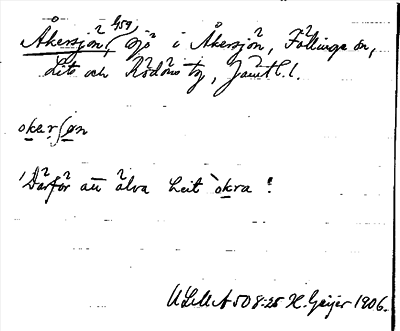 459
Åkersjön, sjö i Åkersjön, Föllinge sn,
Lits och Rödöns tg, Jämtl. l.
okerʃøn
"Därför att älva heit `okra".
ULMA 508:25 H. Geijer 1906.